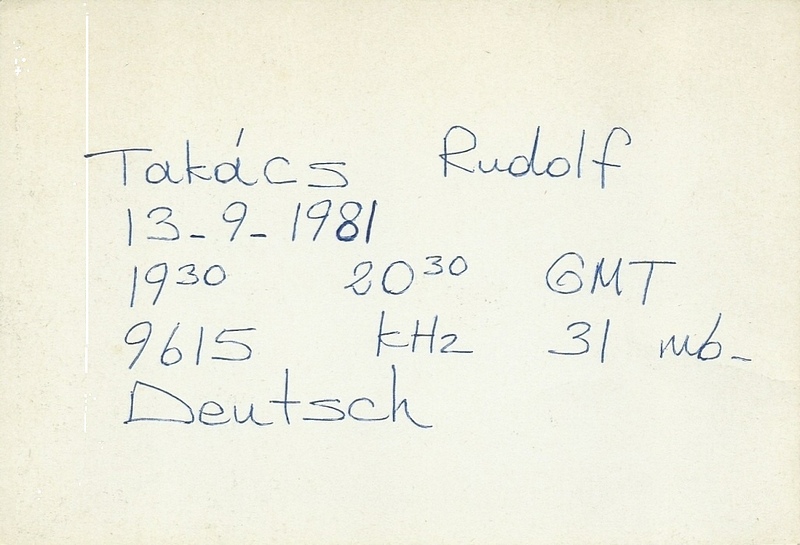 Takács Rudolf
13-9-1981
19³⁰ 20³⁰ GMT
9615 kHz 31 mb-
Deutsch